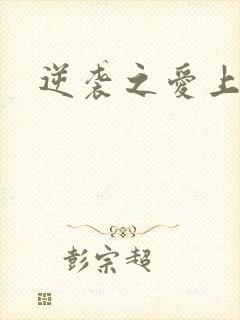 逆袭之愛上
彭宗超